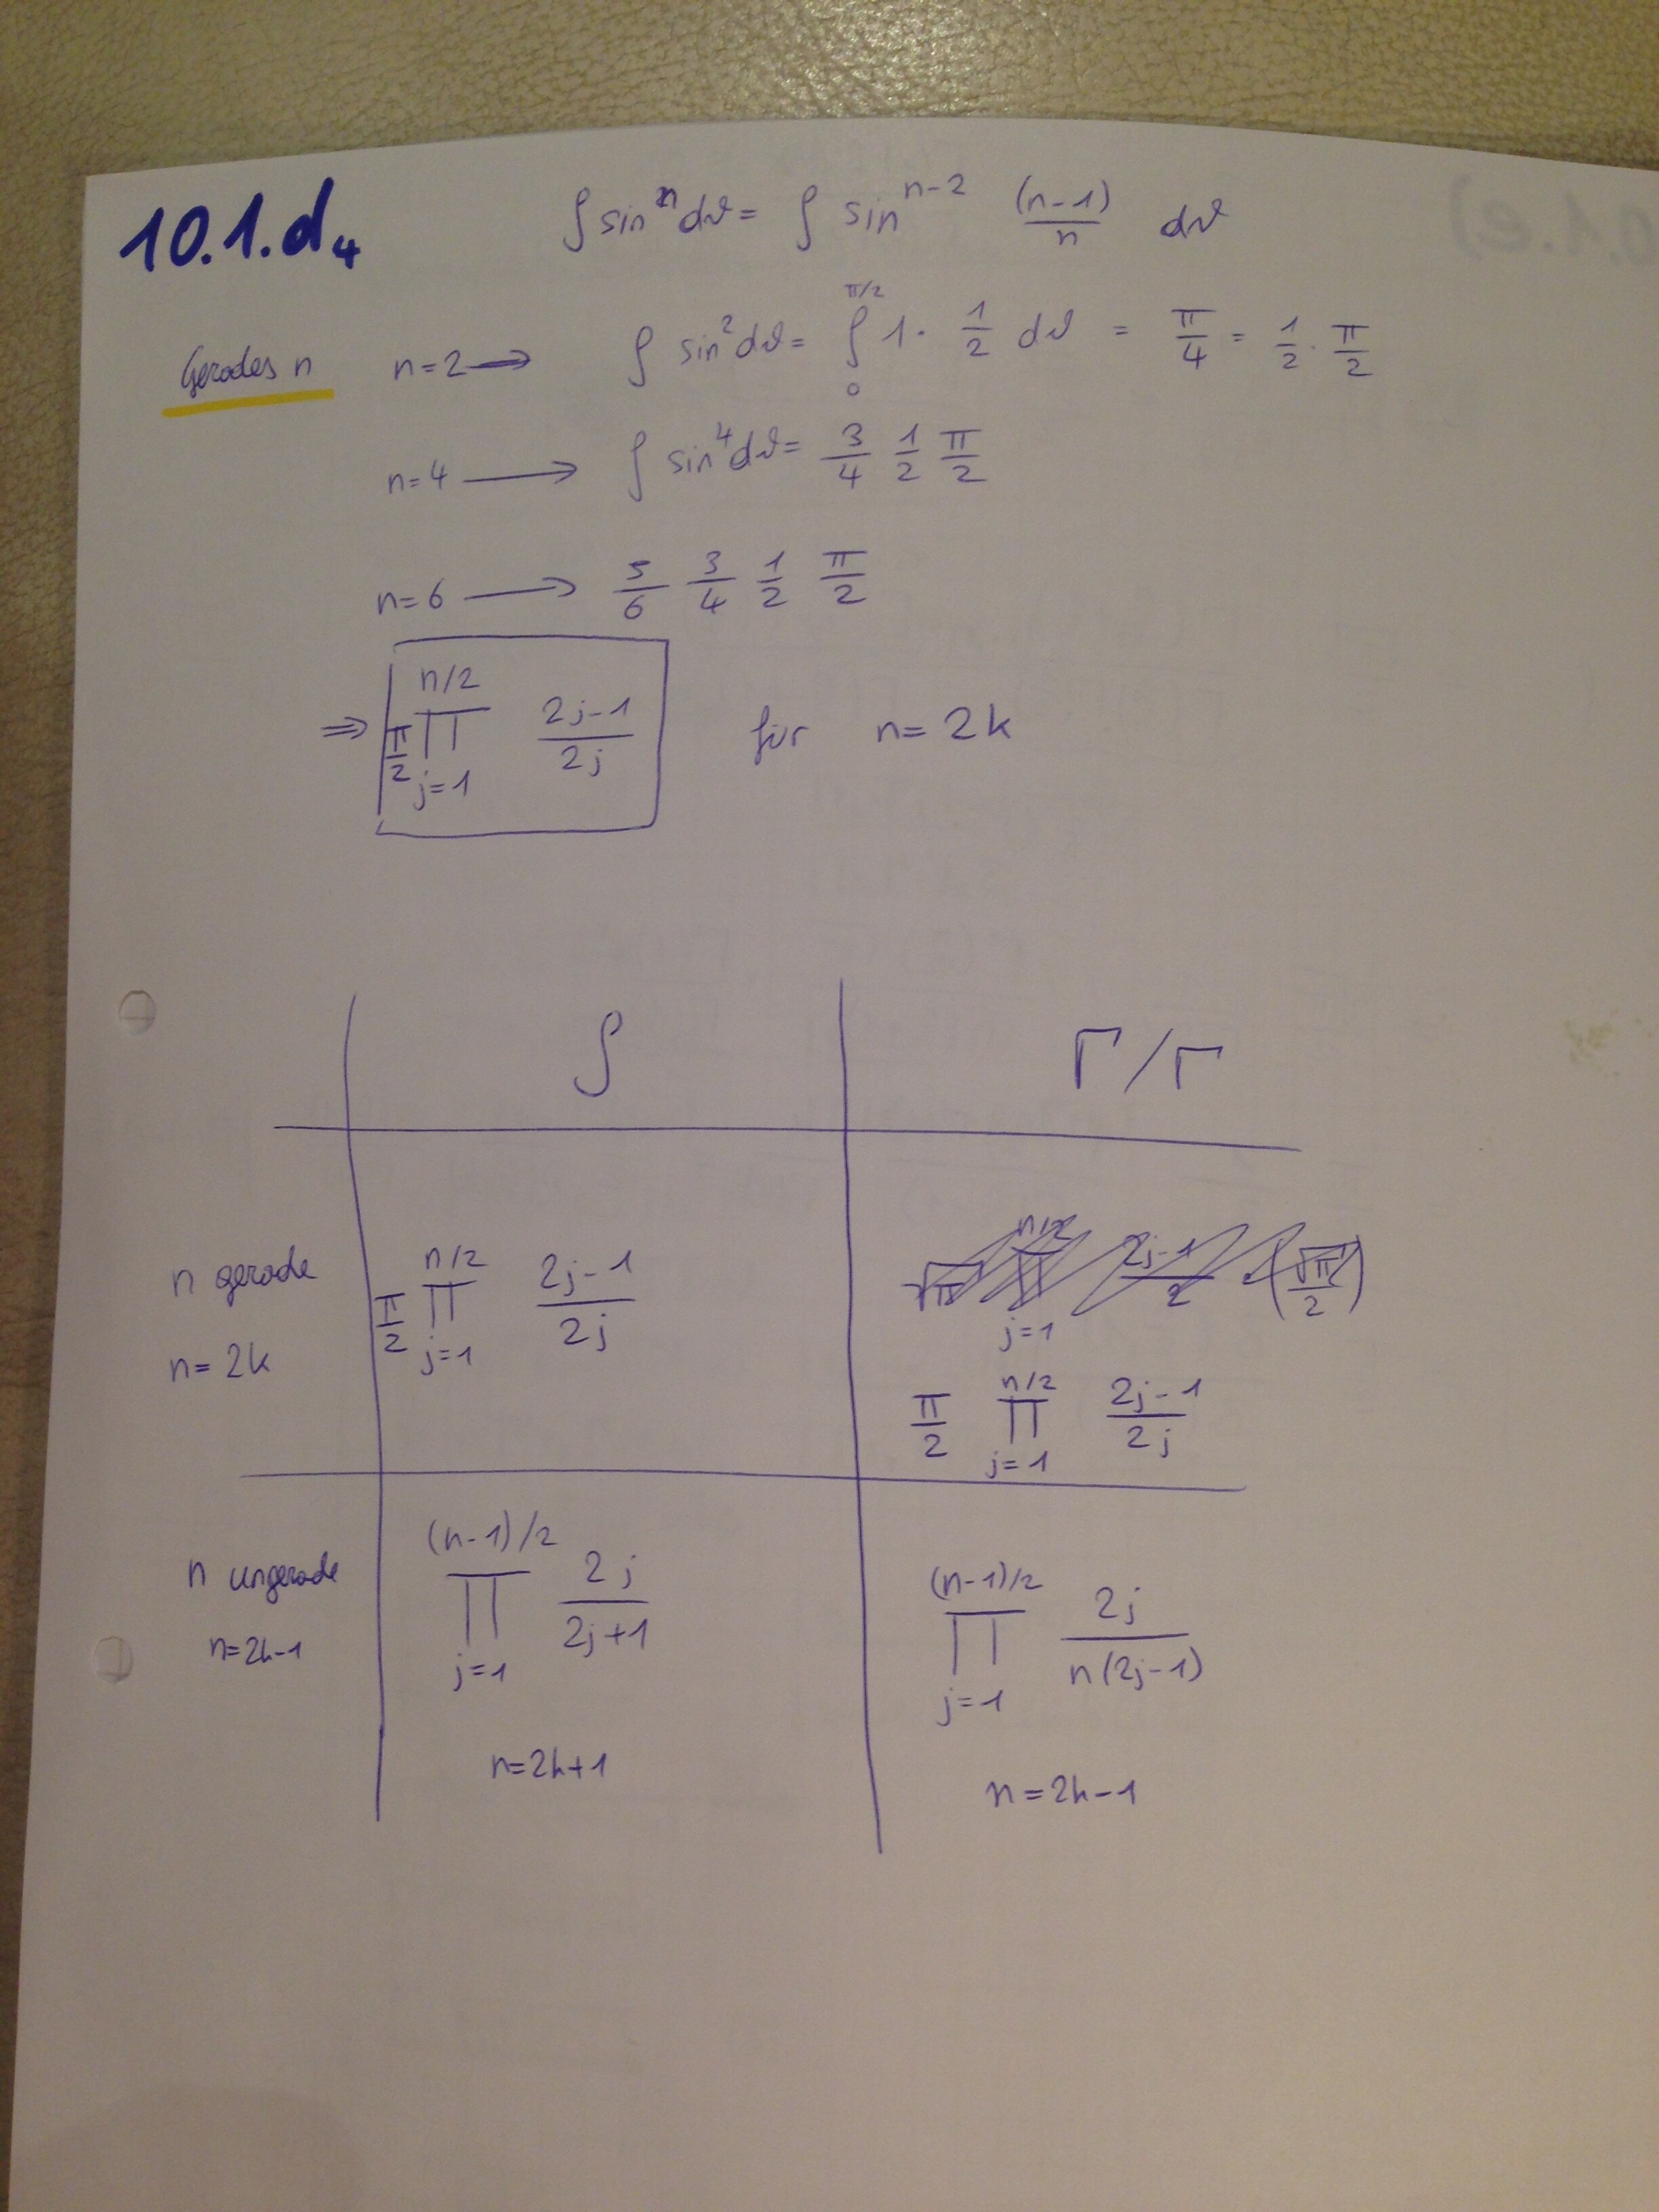 10.1.d₄ ∫ sin^n dϑ = ∫ sin^(n-2) (n-1)/n dϑ
Gerades n n=2 → ∫ sin² dϑ = ∫_0^(π/2) 1 · 1/2 dϑ = π/4 = 1/2 · π/2
n=4 → ∫ sin⁴ dϑ = 3/4 1/2 π/2
n=6 → 5/6 3/4 1/2 π/2
⇒ π/2 ∏_(j=1)^(n/2) (2j-1)/(2j) für n=2k
∫ Γ/Γ
√π ∏_(j=1)^(n/2) (2j-1)/2 · (√π/2)
n gerade π/2 ∏_(j=1)^(n/2) (2j-1)/(2j)
n=2k
π/2 ∏_(j=1)^(n/2) (2j-1)/(2j)
n ungerade ∏_(j=1)^((n-1)/2) (2j)/(2j+1) ∏_(j=1)^((n-1)/2) (2j)/(n(2j-1))
n=2k-1
n=2k+1 n=2k-1